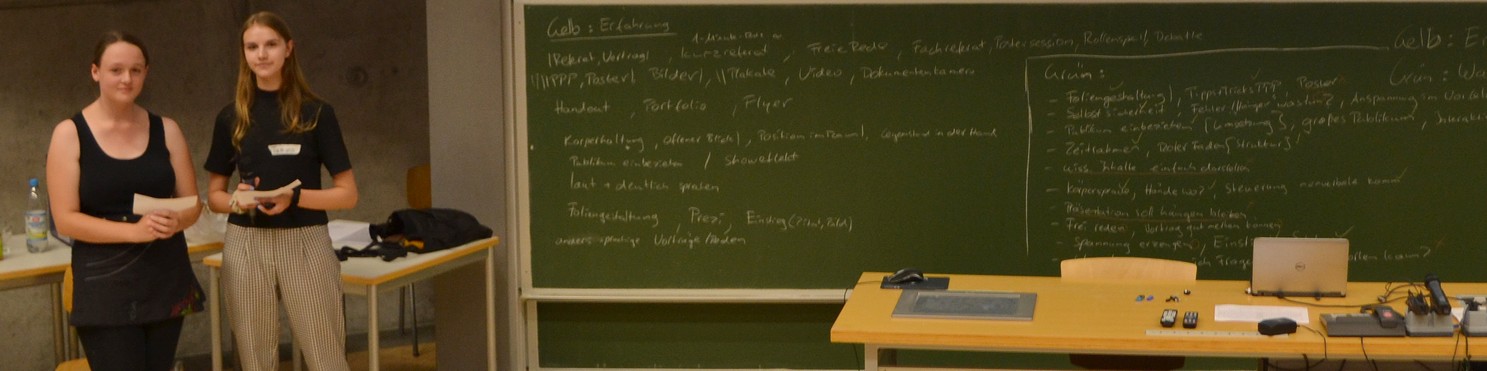 Gelb: Erfahrung
1-Minute-
|Referat, Vortrag|, Kurzreferat, Freie Rede, Fachreferat, Postersession, Rollenspiel, Debatte
PPP, Poster| Bilder|, Plakate, Video, Dokumentenkamera
Handout, Portfolio, Flyer
Körperhaltung, offener Blick|, Position im Raum|, Gegenstand in der Hand
Publikum einbeziehen / Showeffekt
laut + deutlich sprechen
Foliengestaltung, Prezi, Einstieg (Zitat, Bild)
Vorträge/Reden
Gelb: Er
Grün: Wa
Grün:
- Foliengestaltung|, Tipps+Tricks PPP, Poster
- Selbstsicherheit, Fehler/Hänger was tun?, Anspannung im
- Publikum einbeziehen [Umsetzung], großes Publikum, Interakti
- Zeitrahmen, Roter Faden [Struktur]
- wiss. Inhalte einfach darstellen
- Körpersprache, Hände wo?, Steuerung nonverbale Komm
- Präsentation soll hängen bleiben
- Frei reden, Vortrag gut merken können
- Spannung erzeugen, Einst
ich Frage kam?
DELL